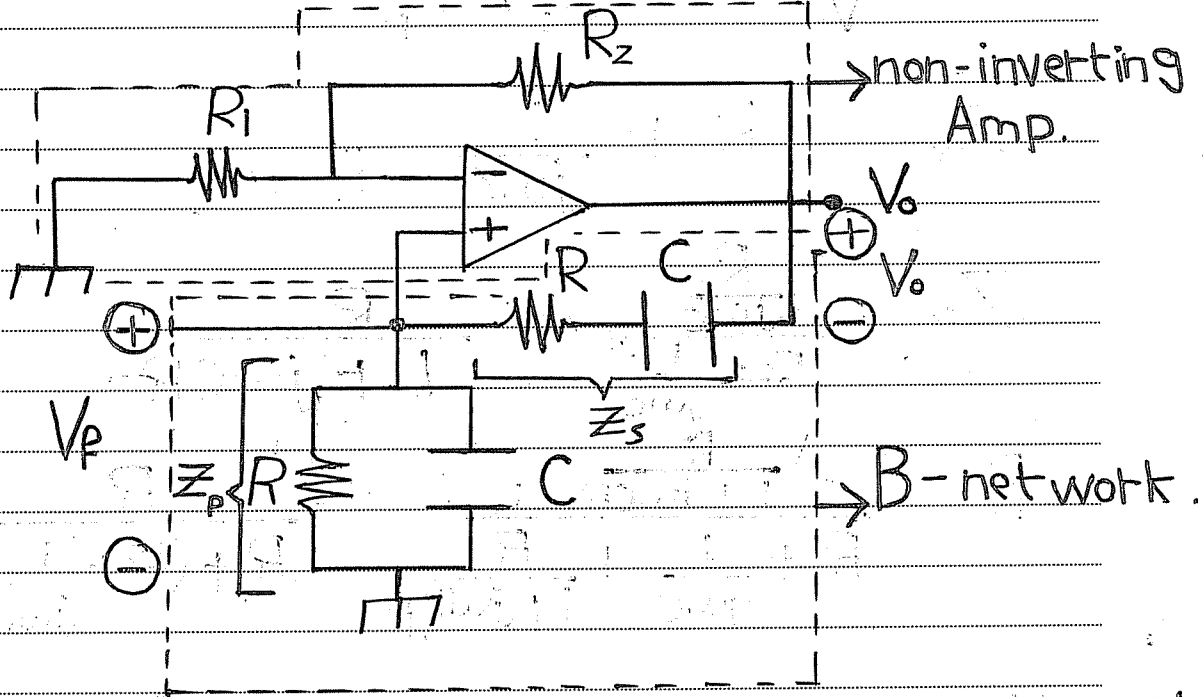 R2
non-inverting
Amp.
R1
-
Vo
+
+
R
C
Vo
+
-
Zs
Vf
Zp
R
C
B-network.
-